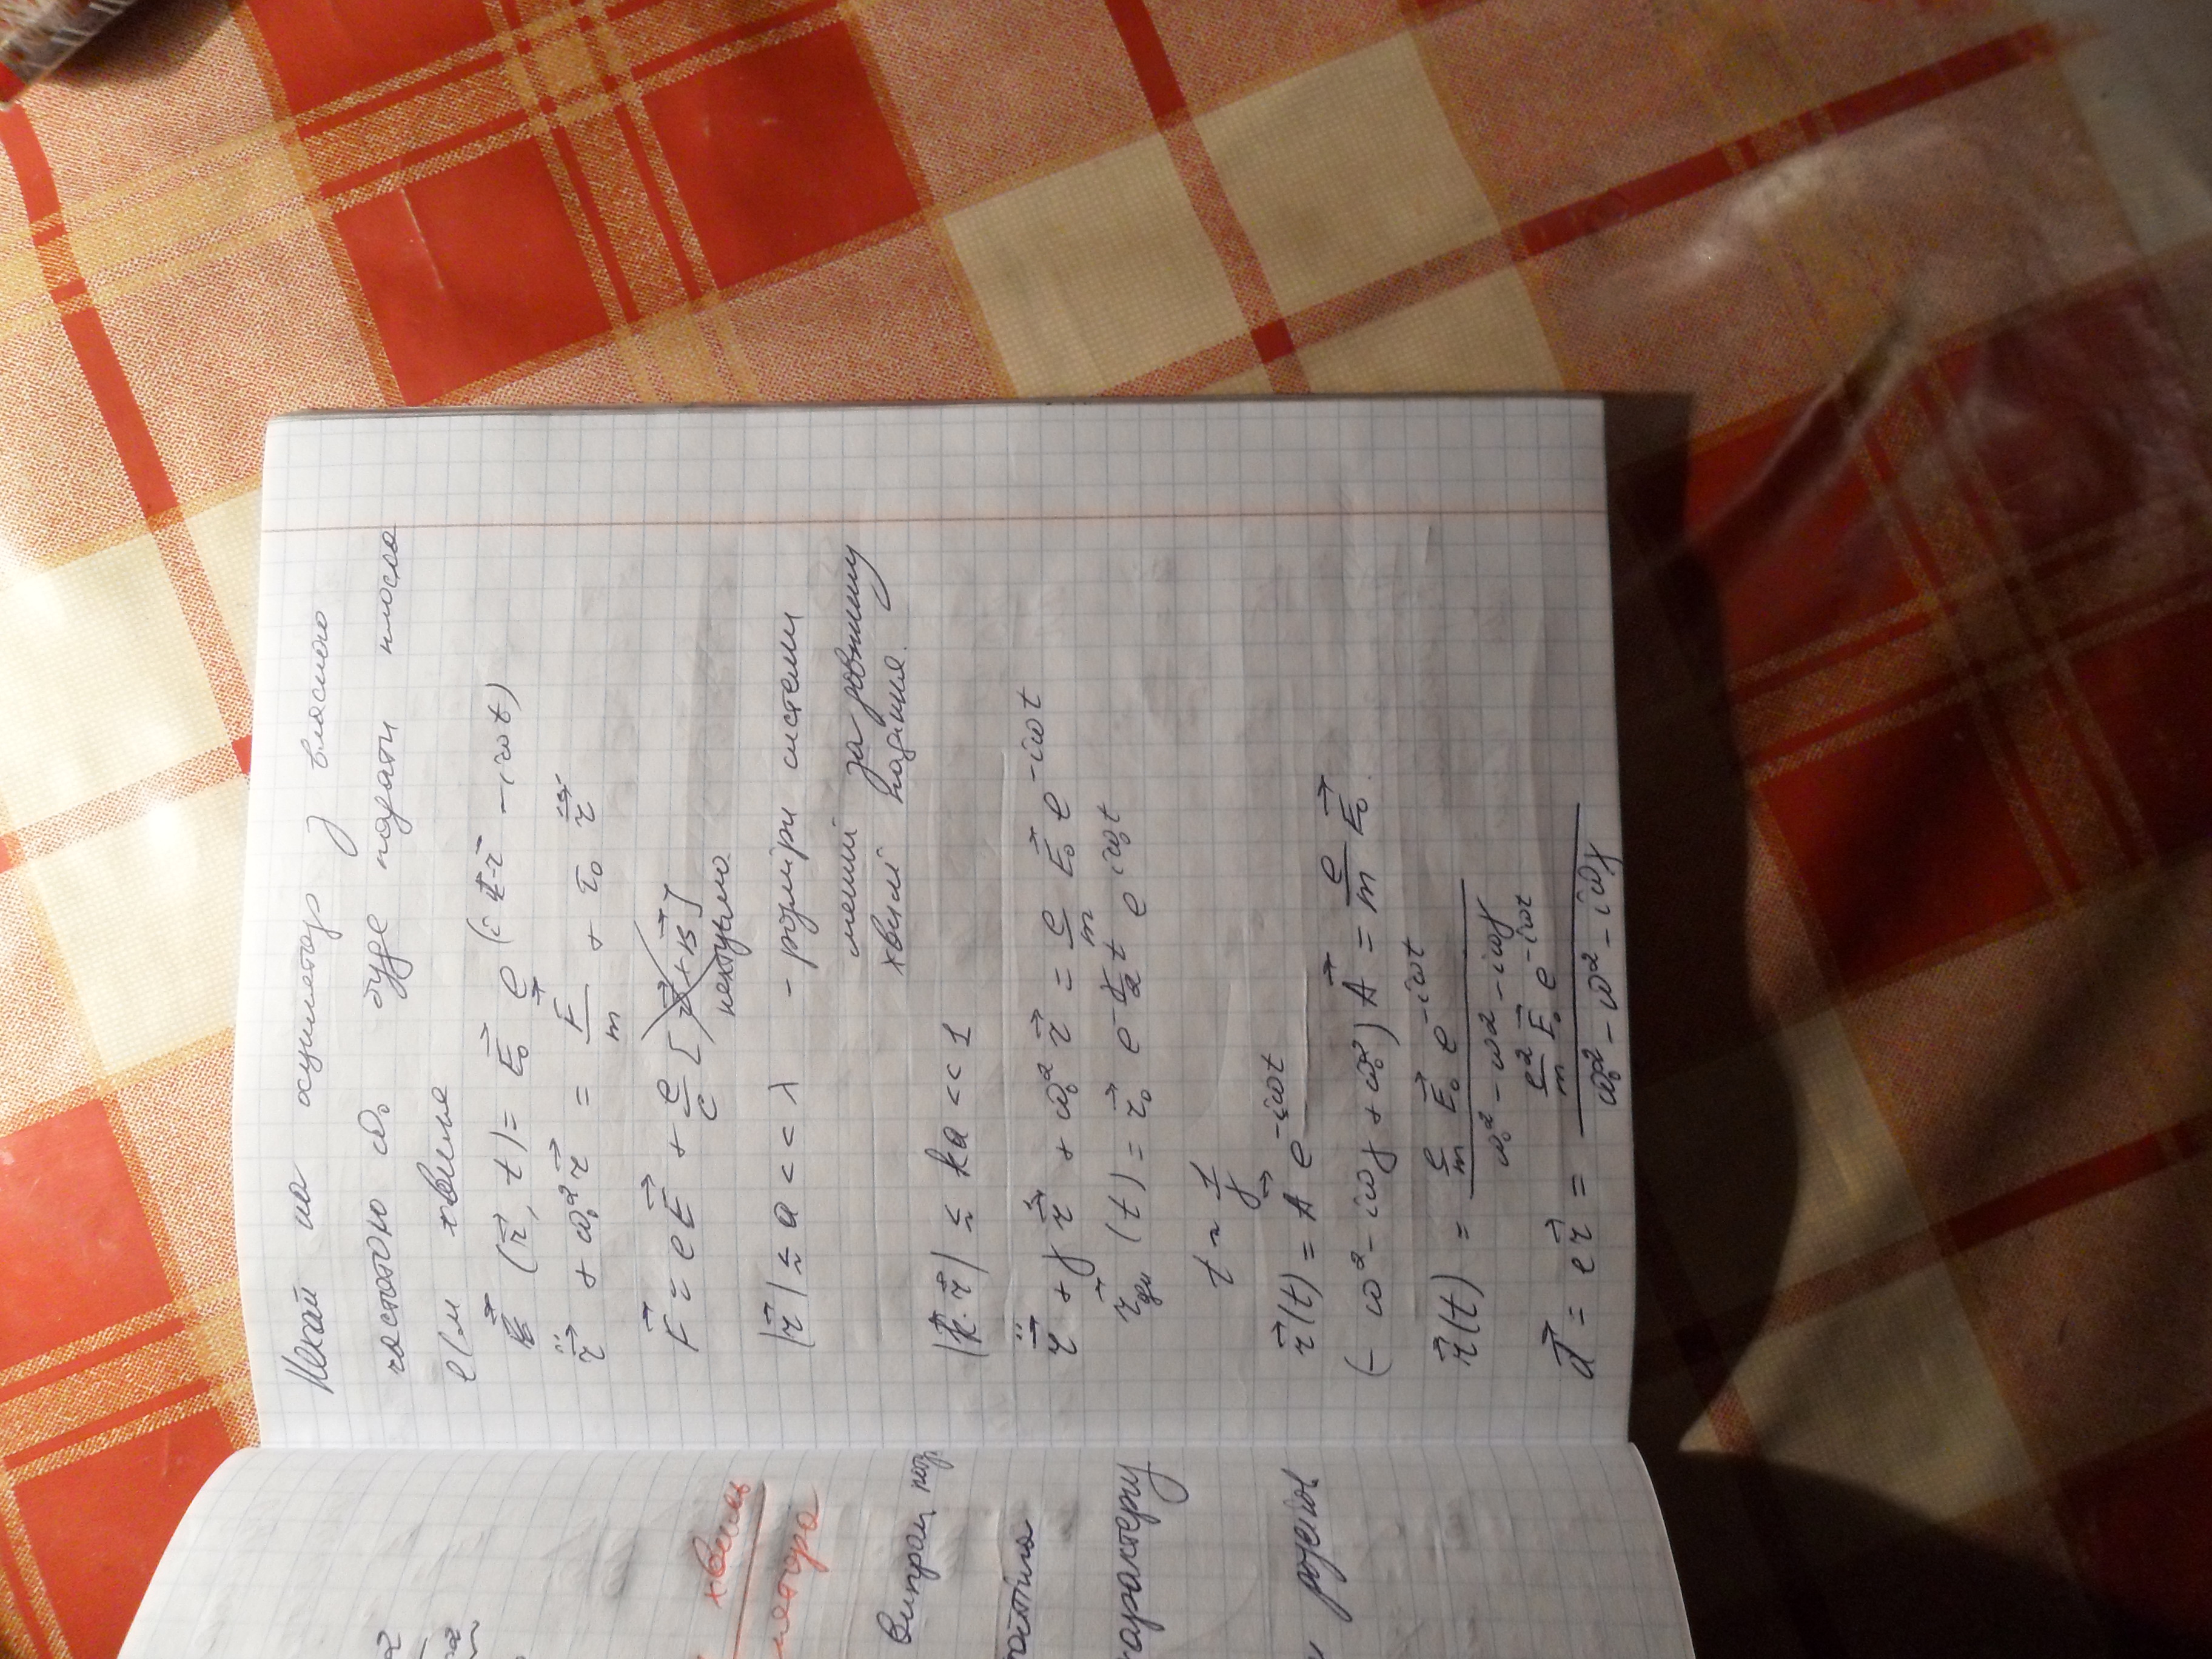 Нехай на осцилятор з власною
частотою ω₀ буде падати плоска
е/м хвиля
E⃗ (r⃗, t) = E⃗₀ e^(i k⃗·r⃗ - iωt)
r⃗̈ + ω₀² r⃗ = F⃗/m + τ₀ r⃗⃛
F⃗ = e E⃗ + e/c [v⃗ × B⃗]
нехтуємо
|r⃗| ≲ a << λ - розміри системи
менші за довжину
хвилі падіння.
|k⃗·r⃗| ≲ ka << 1
r⃗̈ + γ r⃗̇ + ω₀² r⃗ = e/m E⃗₀ e^(-iωt)
(t) = r⃗₀ e^(-γ/2 t) e^(iω₀t)
t ~ 1/γ
r⃗(t) = A⃗ e^(-iωt)
(- ω² - iωγ + ω₀²) A⃗ = e/m E⃗₀
r⃗(t) = (e/m E⃗₀ e^(-iωt)) / (ω₀² - ω² - iωγ)
d⃗ = e r⃗ = (e²/m E⃗₀ e^(-iωt)) / (ω₀² - ω² - iωγ)
хвиль
лятора
характеру